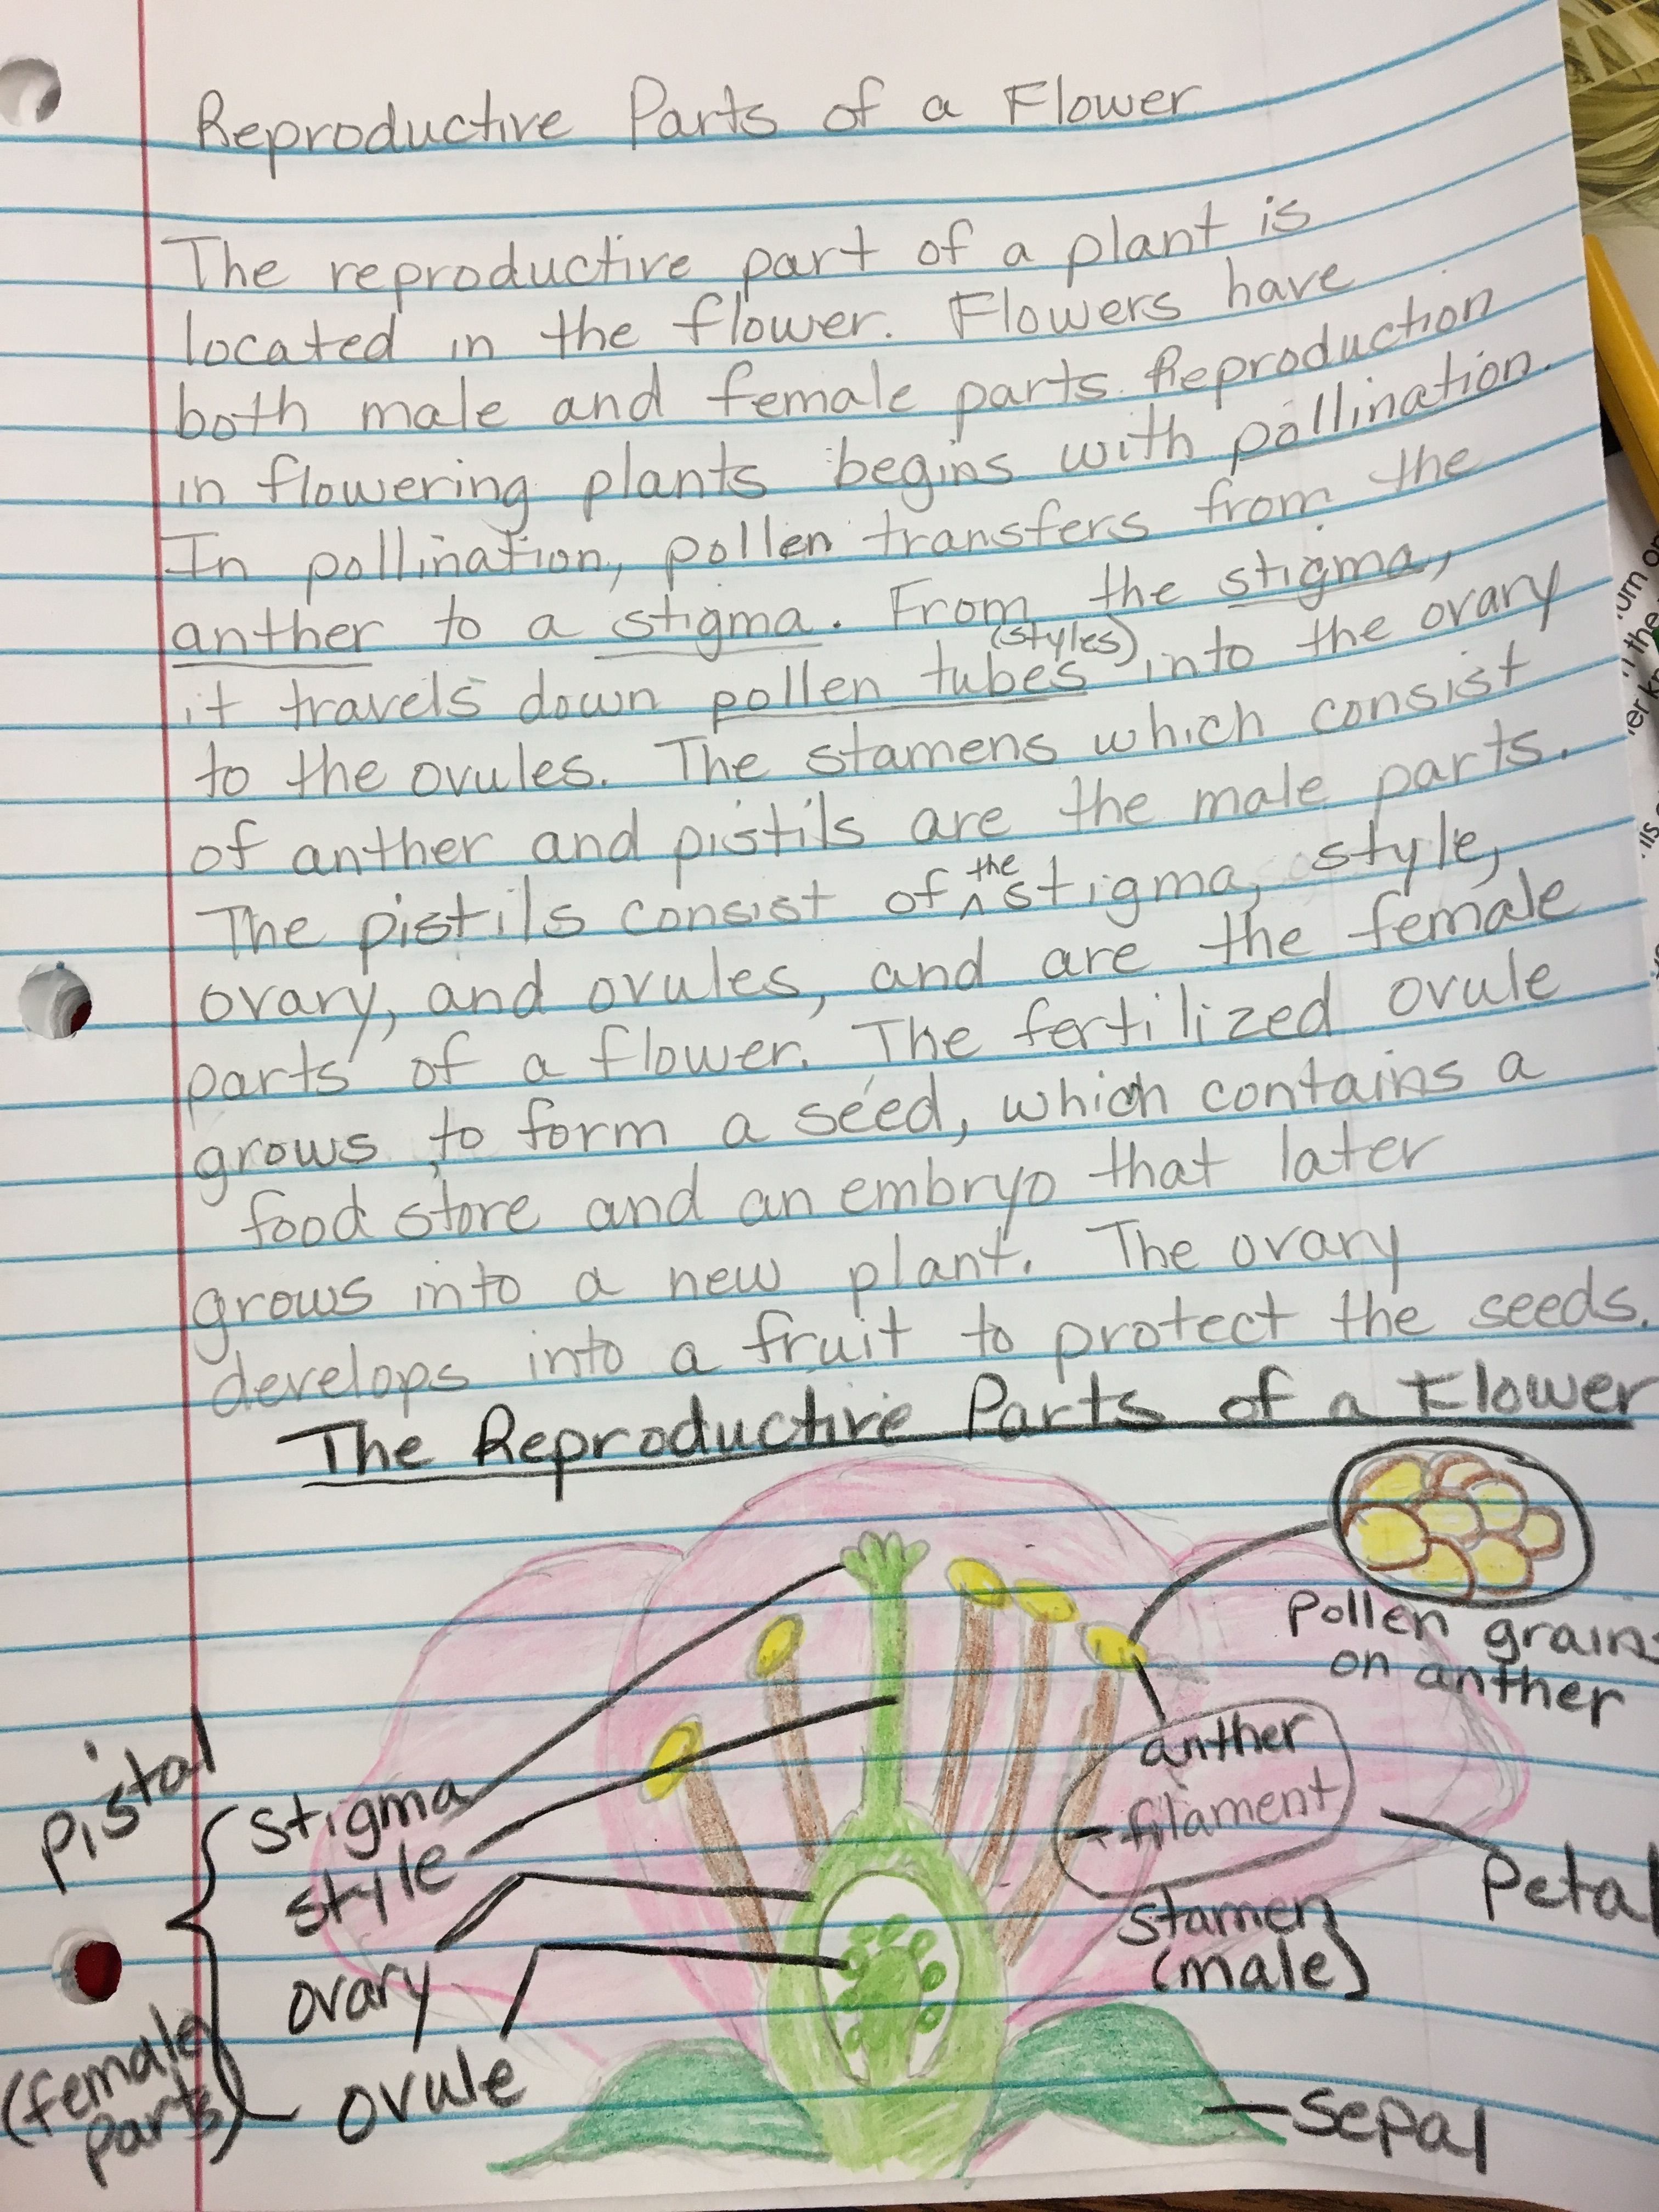 Reproductive Parts of a Flower
The reproductive part of a plant is
located in the flower. Flowers have
both male and female parts. Reproduction
in flowering plants begins with pollination.
In pollination, pollen transfers from the
anther to a stigma. From the stigma,
(styles)
it travels down pollen tubes into the ovary
to the ovules. The stamens which consist
of anther and pistils are the male parts.
the
The pistils consist of ^ stigma, style,
ovary, and ovules, and are the female
parts of a flower. The fertilized ovule
grows to form a seed, which contains a
food store and an embryo that later
grows into a new plant. The ovary
develops into a fruit to protect the seeds.
The Reproductive Parts of a Flower
Pollen grains
on anther
anther
filament
Petal
stamen
(male)
sepal
pistal
stigma
style
ovary
ovule
(female
parts)